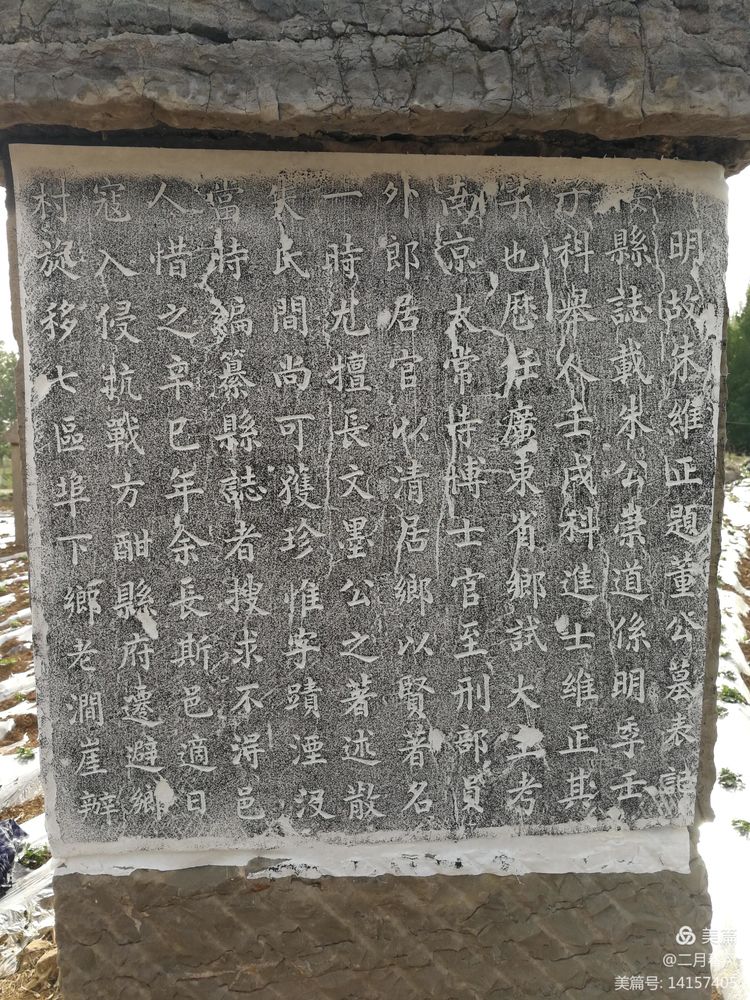 明故朱維正題董公墓表記
縣誌載朱公崇道係明季壬
子科舉人壬戌科進士維正其
子也歷任廣東省鄉試大主考
南京太常寺博士官至刑部員
外郎居官以清居鄉以賢著名
一時尤擅長文墨公之著述散
失民間尚可獲珍惟蹟湮没
當時編纂縣誌者搜求不淂邑
人惜之辛巳年余長斯邑適日
寇入侵抗戰方酣縣府遷避鄉
村旋移七區埠下鄉老澗崖辦
美篇
@二月
美篇号: 14157405